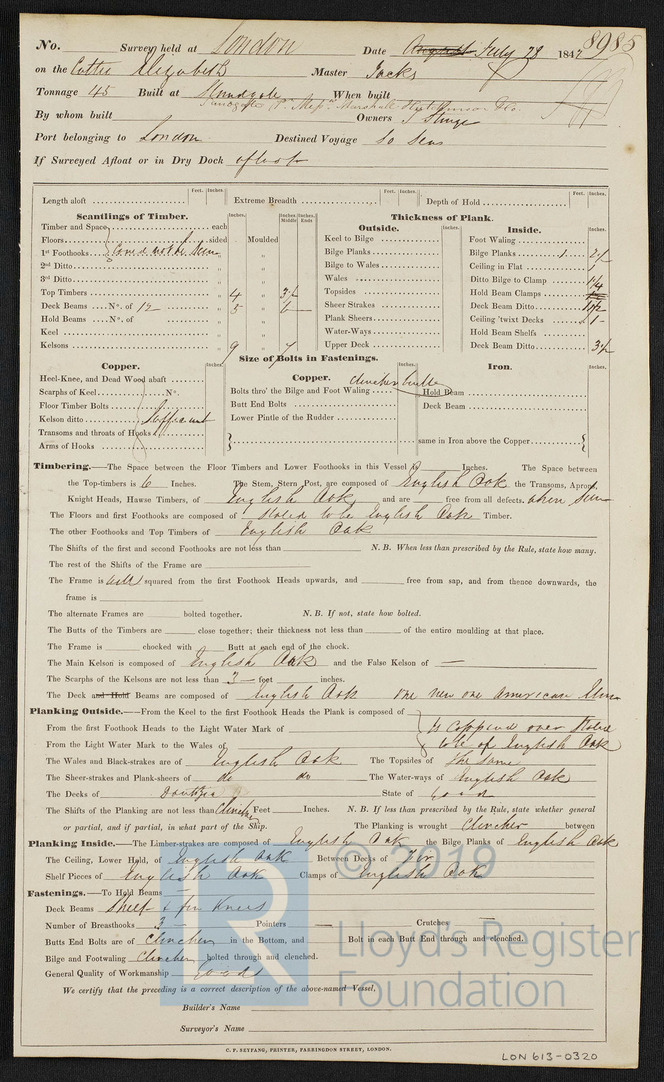 No. Survey held at London Date August July 28 1847 8985
on the Cutter Elizabeth Master Jacks
Tonnage 45 Built at Sandgate When built
Sandgate Pr Messrs Marshall
By whom built Owners J Sturge
Port belonging to London Destined Voyage So Seas
If Surveyed Afloat or in Dry Dock afloat
Feet. Inches. Feet. Inches. Feet. Inches.
Length aloft Extreme Breadth Depth of Hold
Scantlings of Timber. Inches. Inches Middle Inches Ends Thickness of Plank.
Outside. Inches. Inside. Inches.
Timber and Space each
Floors sided Moulded
1st Foothooks Could not be seen " "
2nd Ditto " "
3rd Ditto " "
Top Timbers " 4 " 3½
Deck Beams No. of 12 " 5 " 6
Hold Beams No. of " "
Keel " "
Kelsons " 9 " 7
Keel to Bilge
Bilge Planks
Bilge to Wales
Wales
Topsides
Sheer Strakes
Plank Sheers
Water-Ways
Upper Deck
Foot Waling
Bilge Planks 1 2½
Ceiling in Flat 1
Ditto Bilge to Clamp 1¼
Hold Beam Clamps
Deck Beam Ditto 1½
Ceiling 'twixt Decks 1
Hold Beam Shelfs
Deck Beam Ditto 3½
Size of Bolts in Fastenings.
Copper. Inches. Copper. Clincher built Inches. Iron. Inches.
Heel-Knee, and Dead Wood abaft
Scarphs of Keel No.
Floor Timber Bolts
Kelson ditto Sufficient
Transoms and throats of Hooks
Arms of Hooks
Bolts thro' the Bilge and Foot Waling
Butt End Bolts
Lower Pintle of the Rudder
Hold Beam
Deck Beam
same in Iron above the Copper
Timbering.—The Space between the Floor Timbers and Lower Foothooks in this Vessel is Inches. The Space between
the Top-timbers is 6 Inches. The Stem, Stern Post, are composed of English Oak the Transoms, Aprons,
Knight Heads, Hawse Timbers, of English Oak and are free from all defects. when seen
The Floors and first Foothooks are composed of Stated to be English Oak Timber.
The other Foothooks and Top Timbers of English Oak
The Shifts of the first and second Footbooks are not less than N. B. When less than prescribed by the Rule, state how many.
The rest of the Shifts of the Frame are
The Frame is well squared from the first Foothook Heads upwards, and free from sap, and from thence downwards, the
frame is
The alternate Frames are bolted together. N. B. If not, state how bolted.
The Butts of the Timbers are close together; their thickness not less than of the entire moulding at that place.
The Frame is chocked with Butt at each end of the chock.
The Main Kelson is composed of English Oak and the False Kelson of —
The Scarphs of the Kelsons are not less than 3 feet inches.
The Deck and Hold Beams are composed of English Oak one new one American Elm
Planking Outside.—From the Keel to the first Foothook Heads the Plank is composed of
From the first Foothook Heads to the Light Water Mark of is coppered over Stated
From the Light Water Mark to the Wales of to be of English Oak
The Wales and Black-strakes are of English Oak The Topsides of the Same
The Sheer-strakes and Plank-sheers of do do The Water-ways of English Oak
The Decks of Dantzic State of Good
The Shifts of the Planking are not less than Clincher Feet Inches. N. B. If less than prescribed by the Rule, state whether general
or partial, and if partial, in what part of the Ship. The Planking is wrought Clincher between
Planking Inside.—The Limber-strakes are composed of English Oak the Bilge Planks of English Oak
The Ceiling, Lower Hold, of English Oak Between Decks of Fir
Shelf Pieces of English Oak Clamps of English Oak
Fastenings.—To Hold Beams —
Deck Beams Shelf & Iron Knees
Number of Breasthooks 3 Pointers — Crutches —
Butts End Bolts are of Clincher in the Bottom, and Bolt in each Butt End through and clenched.
Bilge and Footwaling Clincher bolted through and clenched.
General Quality of Workmanship Good
We certify that the preceding is a correct description of the above-named Vessel,
Builder's Name
Surveyor's Name
C. F. SEYFANG, PRINTER, FARRINGDON STREET, LONDON.
LON 613-0320
© 2019
Lloyd's Register
Foundation